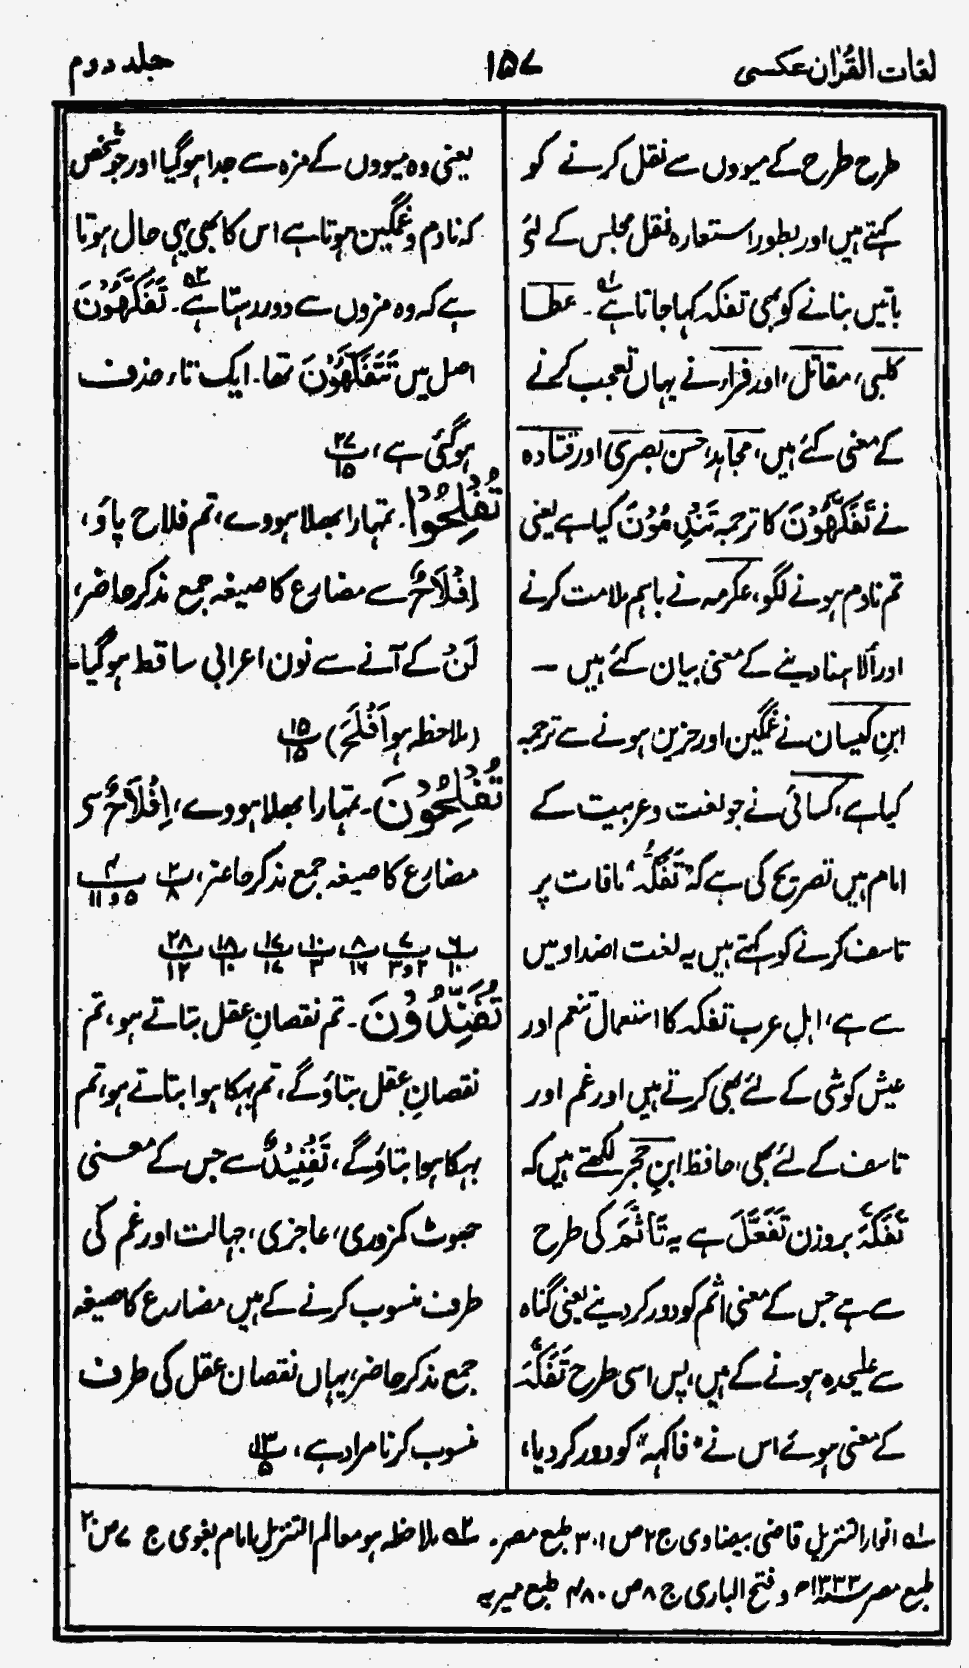 لغات القرآن عکسی
۱۵۷
جلد دوم
طرح طرح کے میووں سے نقل کرنے کو
کہتے ہیں اور بطور استعارہ نقل مجلس کے لئے
باتیں بنانے کو بھی تفکہ کہا جاتا ہے ۱ھ۔ عطا
کلبی، مقاتل، اور فراء نے یہاں تعجب کرنے
کے معنی کئے ہیں، مجاہد، حسن بصری اور قتادہ
نے تَفَكَّهُوْنَ کا ترجمہ تَنَدَّمُوْنَ کیا ہے یعنی
تم نادم ہونے لگو، عکرمہ نے باہم ملامت کرنے
اور اُلاہنا دینے کے معنی بیان کئے ہیں —
ابنِ کیسان نے غمگین اور حزین ہونے سے ترجمہ
کیا ہے، کسائی نے جو لغت و عربیت کے
امام ہیں تصریح کی ہے کہ "تَفَكُّہ" مافات پر
تاسف کرنے کو کہتے ہیں یہ لغت اضداد میں
سے ہے، اہلِ عرب تفکہ کا استعمال تنعم اور
عیش کوشی کے لئے بھی کرتے ہیں اور غم اور
تاسف کے لئے بھی، حافظ ابنِ حجر لکھتے ہیں کہ
تَفَكَّہَ بروزن تَفَعَّلَ ہے یہ تَأَثَّمَ کی طرح
سے ہے جس کے معنی اثم کو دور کر دینے یعنی گناہ
سے علیحدہ ہونے کے ہیں، پس اسی طرح تَفَكَّہَ
کے معنی ہوئے اس نے "فاکہہ" کو دور کر دیا،
یعنی وہ میووں کے مزہ سے جدا ہو گیا اور جو شخص
کہ نادم و غمگین ہوتا ہے اس کا بھی یہی حال ہوتا
ہے کہ وہ مزوں سے دور رہتا ہے ۲ھ۔ تَفَكَّهُوْنَ
اصل میں تَتَفَكَّهُوْنَ تھا۔ ایک تاء حذف
ہو گئی ہے، ۲۷/۱۵
تُفْلِحُوْا۔ تمہارا بھلا ہووے، تم فلاح پاؤ،
اِفْلَاحٌ سے مضارع کا صیغہ جمع مذکر حاضر،
لَنْ کے آنے سے نون اعرابی ساقط ہو گیا۔
(ملاحظہ ہو اَفْلَحَ) ۱۵/۱۵
تُفْلِحُوْنَ۔ تمہارا بھلا ہووے، اِفْلَاحٌ سی
مضارع کا صیغہ جمع مذکر حاضر، ۲/۸ ۴/۵ و ۱۱
۶/۱۰ ۷/۲ و ۳ ۸/۱۶ ۱۰/۳ ۱۷/۱۷ ۱۸/۱۰ ۲۸/۱۲
تُفَنِّدُوْنَ۔ تم نقصانِ عقل بتاتے ہو، تم
نقصانِ عقل بتاؤ گے، تم بہکا ہوا بتاتے ہو، تم
بہکا ہوا بتاؤ گے، تَفْنِیْدٌ سے جس کے معنی
جھوٹ کمزوری، عاجزی، جہالت اور غم کی
طرف منسوب کرنے کے ہیں مضارع کا صیغہ
جمع مذکر حاضر، یہاں نقصان عقل کی طرف
منسوب کرنا مراد ہے، ۱۳/۵
۱ھ انوار التنزیل قاضی بیضاوی ج ۲ ص ۳۰۱ طبع مصر۔ ۲ھ ملاحظہ ہو معالم التنزیل امام بغوی ج ۷ ص ۲۰
طبع مصر سنہ ۱۳۳۳ھ و فتح الباری ج ۸ ص ۴۸۰ طبع میریہ